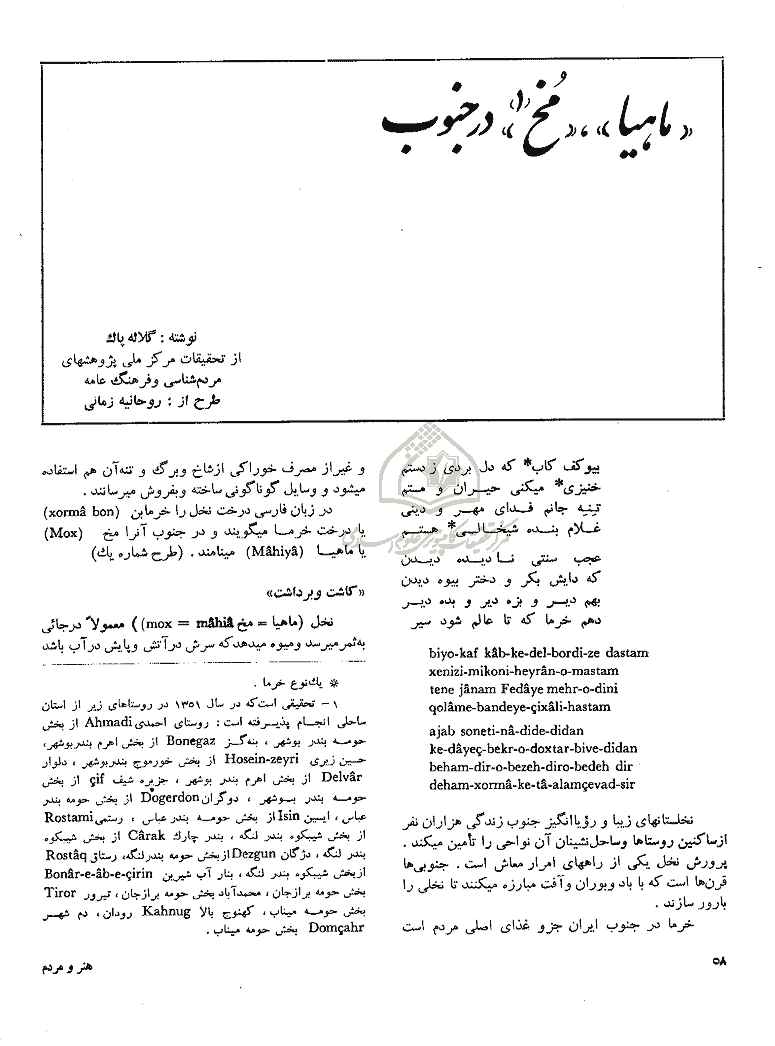 «ماهیا»، «مُخ(۱)» در جنوب
نوشته : گلاله پاك
از تحقیقات مرکز ملی پژوهشهای
مردم‌شناسی و فرهنگ عامه
طرح از : روحانیه زمانی
بیوکف کاب* که دل بردی ز دستم
خنیزی* میکنی حیـران و مستم
تینـه جانم فـدای مهـر و دینی
غـلام بنـده شیخـالـی* هستـم
عجب سنتی نـادیـده دیـدن
که دایش بکر و دختر بیوه دیدن
بهم دیـر و بزه دیر و بده دیـر
دهم خرما که تا عالم شود سیر
biyo-kaf kâb-ke-del-bordi-ze dastam
xenizi-mikoni-heyrân-o-mastam
tene jânam Fedâye mehr-o-dini
qolâme-bandeye-çixâli-hastam
ajab soneti-nâ-dide-didan
ke-dâyeç-bekr-o-doxtar-bive-didan
beham-dir-o-bezeh-diro-bedeh dir
deham-xormâ-ke-tâ-alamçevad-sir
نخلستانهای زیبا و رؤیاانگیز جنوب زندگی هزاران نفر
ازساکنین روستاها وساحل‌نشینان آن نواحی را تأمین میکند .
پرورش نخل یکی از راههای امرار معاش است . جنوبی‌ها
قرن‌ها است که با باد وبوران وآفت مبارزه میکنند تا نخلی را
بارور سازند .
خرما در جنوب ایران جزو غذای اصلی مردم است
و غیراز مصرف خوراکی ازشاخ وبرگ و تنه‌آن هم استفاده
میشود و وسایل گوناگونی ساخته وبفروش میرسانند .
در زبان فارسی درخت نخل را خرمابن (xormâ bon)
یا درخت خرمـا میگویند و در جنوب آنرا مخ (Mox)
یا ماهیـا (Mâhiyâ) مینامند . (طرح شماره یك)
«کاشت وبرداشت»
نخل (ماهیا = مخ mox = mâhiâ)) معمولاً درجائی
به‌ثمرمیرسد ومیوه میدهدکه سرش درآتش وپایش درآب باشد
* یك‌نوع خرما .
۱ – تحقیقی است‌که در سال ۱۳۵۱ در روستاهای زیر از استان
ساحلی انجـام پذیـرفته است : روستای احمدی Ahmadi از بخش
حومـه بندر بوشهر ، بنه‌گـز Bonegaz از بخش اهرم بندربوشهر،
حسین زیری Hosein-zeyri از بخش خورموج بندربوشهر ، دلوار
Delvâr از بخش اهرم بندر بوشهر ، جزیره شیف çif از بخش
حومـه بندر بـوشهر ، دوگران Dogerdon از بخش حومه بندر
عباس ، ایسین Isin از بخش حومـه بندرعباس ، رستمی Rostami
از بخش شیبکوه بندر لنگه ، بندر چارك Cârak از بخش شیبکوه
بندر لنگه ، دژگان Dezgun ازبخش حومه بندرلنگه، رستاق Rostâq
ازبخش شیبکوه بندر لنگه ، بنار آب شیرین Bonâr-e-âb-e-çirin
بخش حومه برازجان ، محمدآباد بخش حومه برازجان ، تیرور Tiror
بخش حومـه میناب ، کهنوج بالا Kahnug رودان ، دم شهـر
Domçahr بخش حومه میناب .
۵۸
هنر و مردم